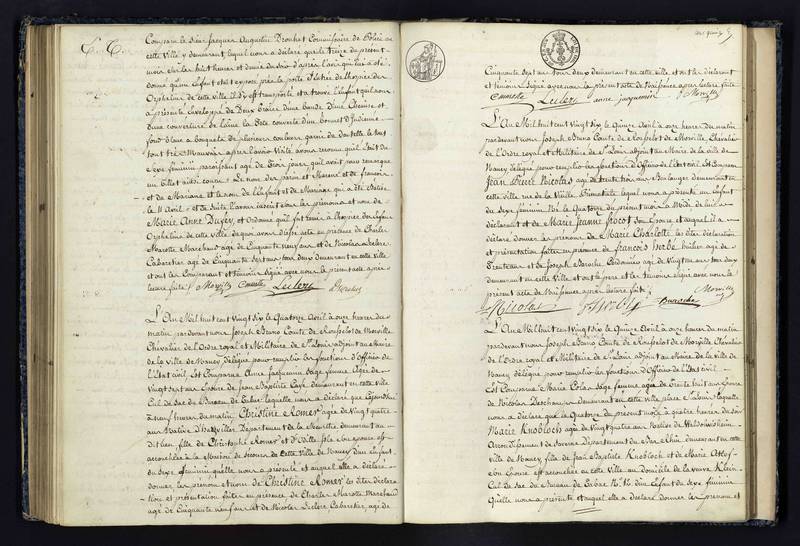 Comparu le sieur Jacques Augustin Drouhet Commissaire de Police de
cette Ville y demeurant lequel nous a déclaré que le treize du présent
mois sur les huit heures et demie du soir d'après l'avis qui lui a été
donné qu'un Enfant était exposé près la porte d'Entrée de l'hospice des
Orphelins de cette ville il s'y est transporté et a trouvé l'Enfant qu'il nous
a présenté Enveloppé de Deux
d'une couverture de laine la tête couverte d'un bonnet d'Indienne
fond blanc à bouquets de plusieurs couleurs garni de dentelle le tout
tout très Mauvais après l'avoir Visité avons reconnu qu'il était du
Sexe féminin paroissant agé de Trois jours qu'il avait pour remarque
un billet ainsi conçu : Le nom des parin et Marenne et de francois
et de Mariane et le nom de l'Enfant et de Mariage qui a été Batisé
le 11 Avril - et de suite l'avons inscrit sous les prénoms et nom de
Marie Anne Dufey, et Ordonné qu'il fut remis à l'hospice des Enfans
Orphelins de cette ville de quoi avons dressé acte en présence de Charles
Marotte Marchand agé de Cinquante neuf ans et de Nicolas Leclere
Cabaretier agé de Cinquante sept ans tous deux demeurant en cette Ville
et ont les Comparant et Témoins Signé avec nous le présent acte après
lecture faite /
Leclere
L'An Mil huit cent Vingt six le Quatorze Avril à onze heures du
matin pardevant nous Joseph Bruno Comte de Rousselot de Morville
Chevalier de l'Ordre royal et Militaire de St Louis adjoint au Maire
de la Ville de Nancy délégué pour remplir les fonctions d'Officier de
l'Etat civil, Est Comparue Anne Jacquemin Sage femme Agée de
Vingt sept ans Epouse de Jean Baptiste Cayé demeurant en cette Ville
Cul de Sac du Bureau de Tabac laquelle nous a déclaré que Cejourd'hui
à neuf heures du matin, Christine Romer agée de Vingt quatre
ans Native d'Hazeviller Département de la Meurthe, demeurant au
dit lieu, fille de Christophe Romer et d'Odille son épouse est
accouchée à la Maison de Secours de Cette Ville de Nancy d'un Enfant
du Sexe féminin qu'elle nous a présenté et auquel elle a déclaré
donner les prénom et nom de Christine Romer les dites déclara
tion et présentation faites en présence de Charles Marotte Marchand
agé de Cinquante neuf ans et de Nicolas Leclere Cabaretier, agé de
Cinquante sept ans tous deux demeurant en cette ville et ont les déclarant
et témoins Signé avec nous le présent acte de Naissance après lecture faite
Leclere anne jacquemin
L'An Mil huit cent Vingt six le Quinze Avril à onze heures du matin
pardevant nous Joseph Bruno Comte de Rousselot de Morville, Chevalier
de l'Ordre royal et Militaire de St Louis adjoint au Maire de la ville de
Nancy délégué pour remplir les fonctions d'Officier de l'Etat civil Est Comparu
Jean Pierre Nicolas agé de trente trois ans Boulanger demeurant en
cette Ville rue de la Vieille Primatiale lequel nous a présenté un Enfant
du Sexe féminin Né le Quatorze du présent mois à Midi de lui
déclarant et de Marie Jeanne Frocot son Epouse et auquel il a
déclaré donner les prénoms de Marie Charlotte les dites déclaration
et présentation faites en présence de francois Herbé huilier agé de
Trente ans et de Joseph Baroche Cordonnier agé de Vingt un ans tous deux
demeurant en cette Ville et ont les père et les témoins Signé avec nous le
présent acte de Naissance après lecture faite /
Nicolas Baroche
L'An Mil huit cent Vingt six le Quinze Avril à onze heures du matin
pardevant nous Joseph Bruno Comte de Rousselot de Morville Chevalier
de l'Ordre royal et Militaire de St Louis adjoint au Maire de la ville de
Nancy délégué pour remplir les fonctions d'Officier de l'Etat civil
Est Comparue Marie Colas Sage femme agée de Trente huit ans Epouse
de Nicolas Deschamps demeurant en cette ville place St Louis, laquelle
nous a déclaré que le Quatorze du présent mois à quatre heures du soir
Marie Knobloch agée de Vingt quatre ans Native de
Arrondissement de Saverne Département du Bas Rhin, demeurant en cette
ville de Nancy, fille de Jean Baptiste Knobloch et de Marie
son Epouse est accouchée en cette Ville au domicile de la veuve Klein
Cul de Sac du Bureau de Tabac d'un Enfant du Sexe féminin
Qu'elle nous a présenté et auquel elle a déclaré donner les prénoms et